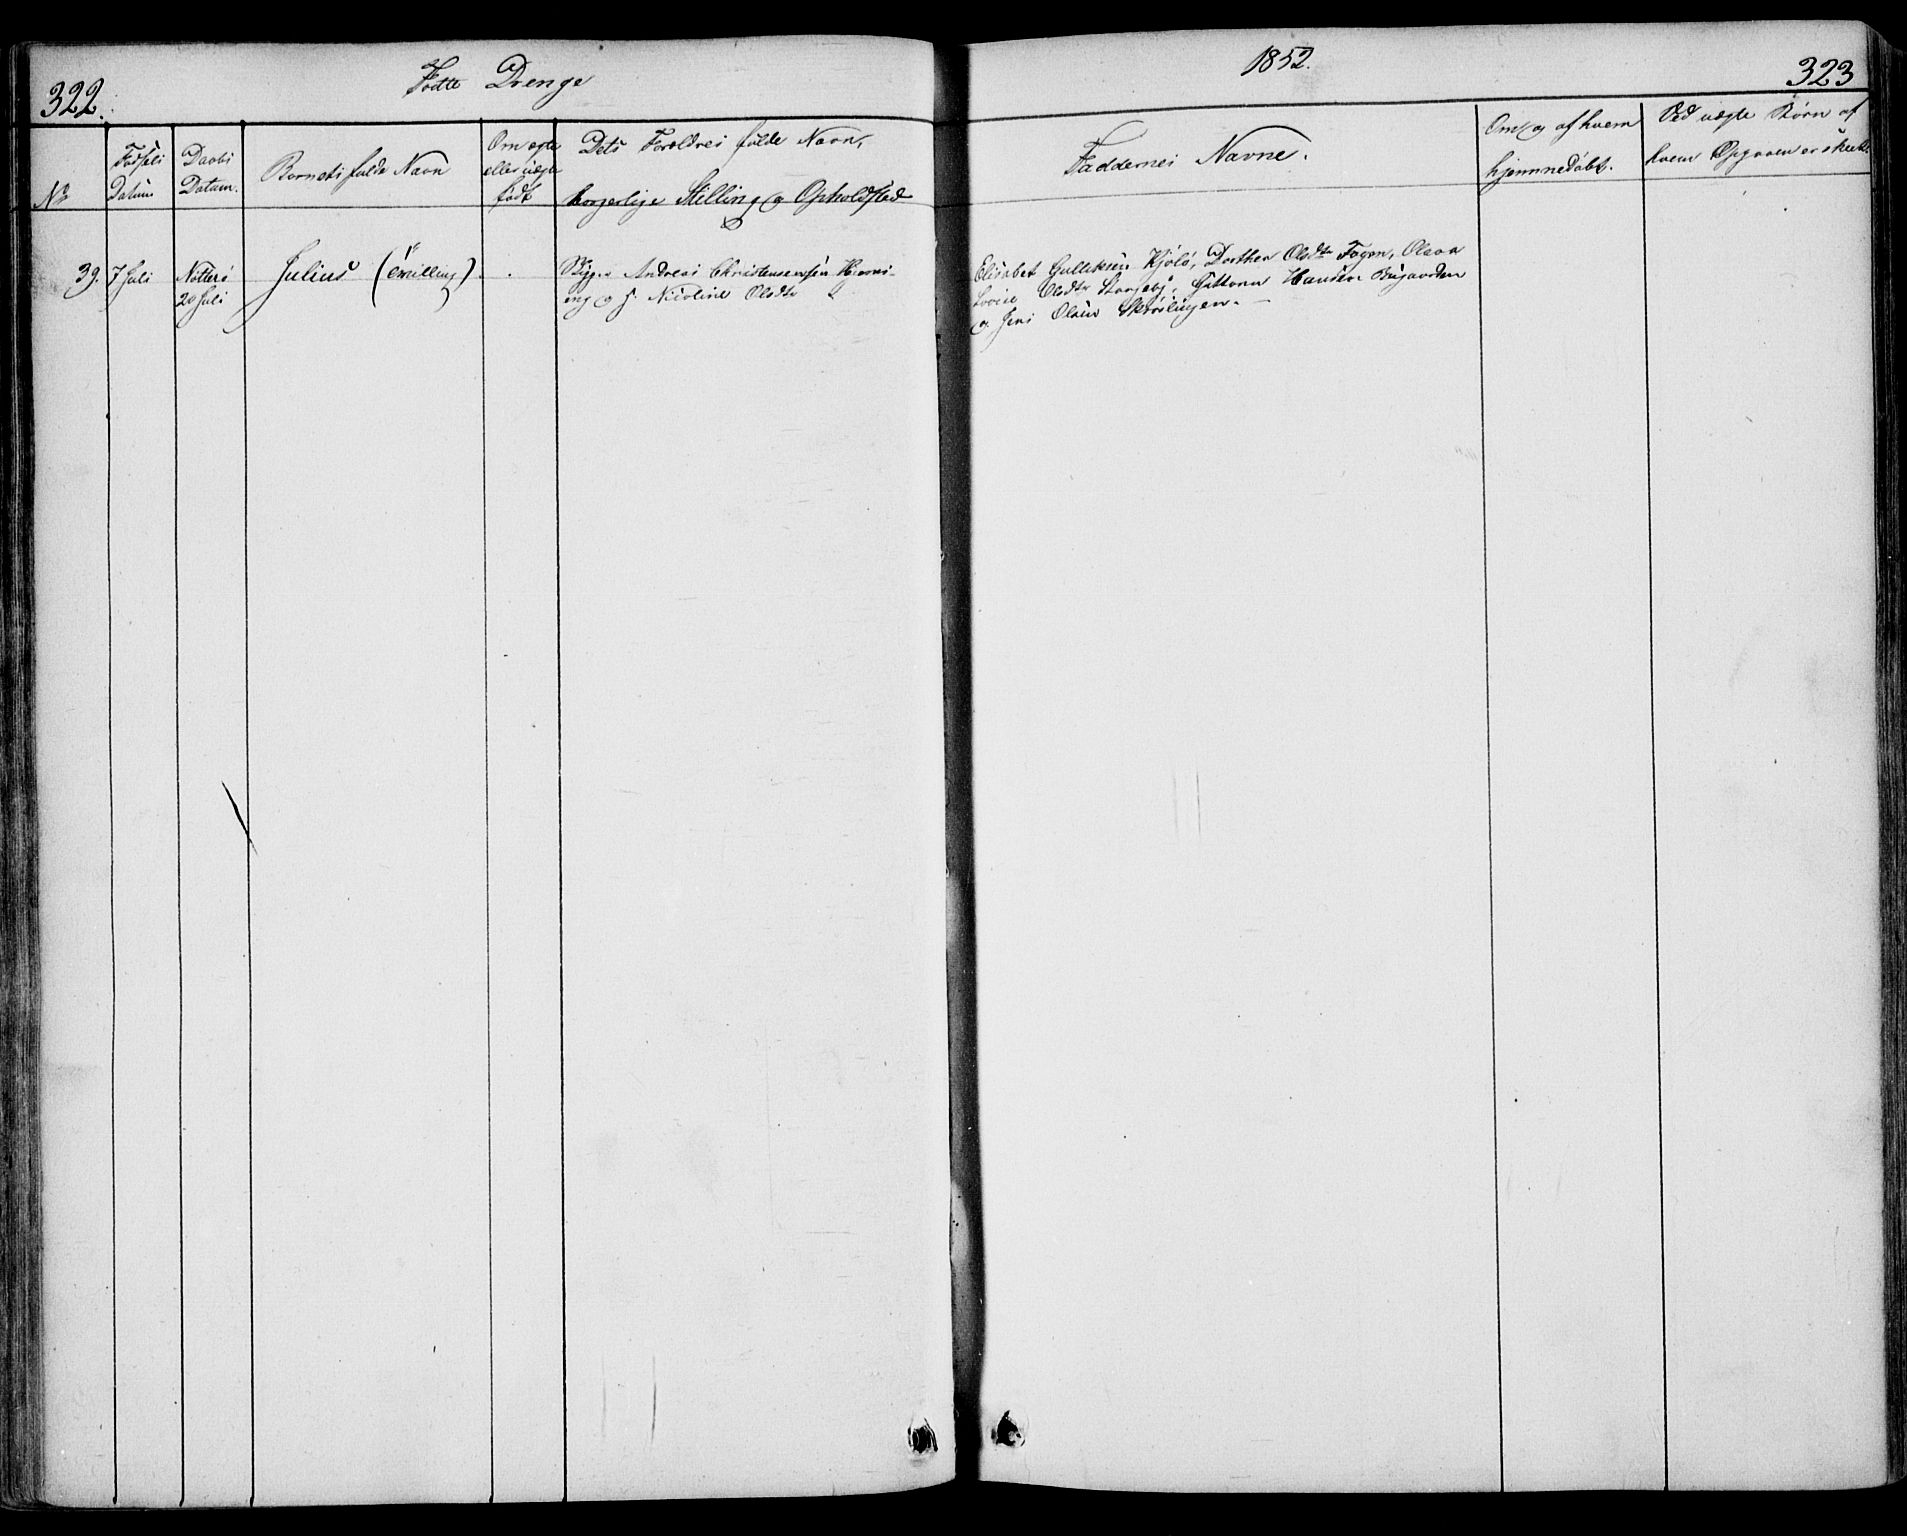 322.
Fødte Drenge
No
Fødsels
Datum
Daabs
Datum.
Barnets fulde Navn
Om ægte
eller uægte
født
Dets Forældres fulde Navn,
borgerlige Stilling og Opholdssted
39.
7 Juli
Nøtterø
20 Juli
Julius (Tvilling)
Andreas Christensen
og h. Nicoline Olsdtr
1852.
323
Faddernes Navne.
Om og af hvem
hjemmedøbt.
Ved uægte Børn af
hvem Opgaven er skeet.
Elisabet Gulliksen Kjølø, Dorthea Olsdtr Fogen, Olava
Lovise Olsdtr Hansen Bugaarden
og Jens Olsen